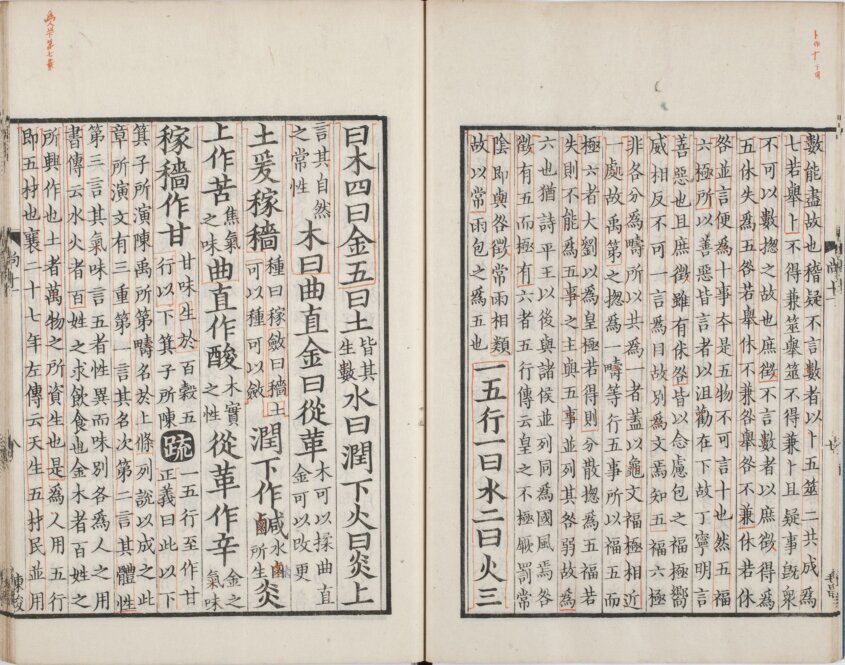 數能盡故也稽疑不言數者以卜五筮二共成爲
七若舉卜不得兼筮舉筮不得兼卜且疑事旣衆
不可以數揔之故也庶徵不言數者以庶徵得爲
五休失爲五咎若舉休不兼咎舉咎不兼休若休
咎並言便爲十事夲是五物不可言十也然五福
六極所以善惡皆言者以沮勸在下故丁寧明言
善惡也且庶徵雖有休咎皆以念慮包之福極嚮
威相反不可一言爲目故別爲文焉知五福六極
非各分爲疇所以共爲一者蓋以龜文福極相近
一處故禹第之揔爲一疇等行五事所以福五而
極六者大劉以爲皇極若得則分散揔爲五福若
失則不能爲五事之主與五事並列其咎弱故爲
六也猶詩平王以後與諸侯並列同爲國風焉咎
徵有五而極有六者五行傳云皇之不極厥罰常
陰即與咎徵常雨相類
故以常雨包之爲五也
一五行一曰水二曰火三
曰木四曰金五曰土皆其生數水曰潤下火曰炎上
言其自然之常性木曰曲直金曰從革木可以揉曲直金可以改更
土爰稼穡種曰稼斂曰穡土可以種可以斂潤下作鹹水鹵所生炎
上作苦焦氣之味曲直作酸木實之性從革作辛金之氣味
稼穡作甘甘味生於百穀五行以下箕子所陳疏五行至作甘正義曰此以下
箕子所演陳禹所第疇名於上條列說以成之此
章所演文有三重第一言其名次第二言其體性
第三言其氣味言五者性異而味別各爲人之用
書傳云水火者百姓之求飲食也金木者百姓之
所興作也土者萬物之所資生也是爲人用五行
即五材也襄二十七年左傳云天生五材民並用
尚十一
陳俊